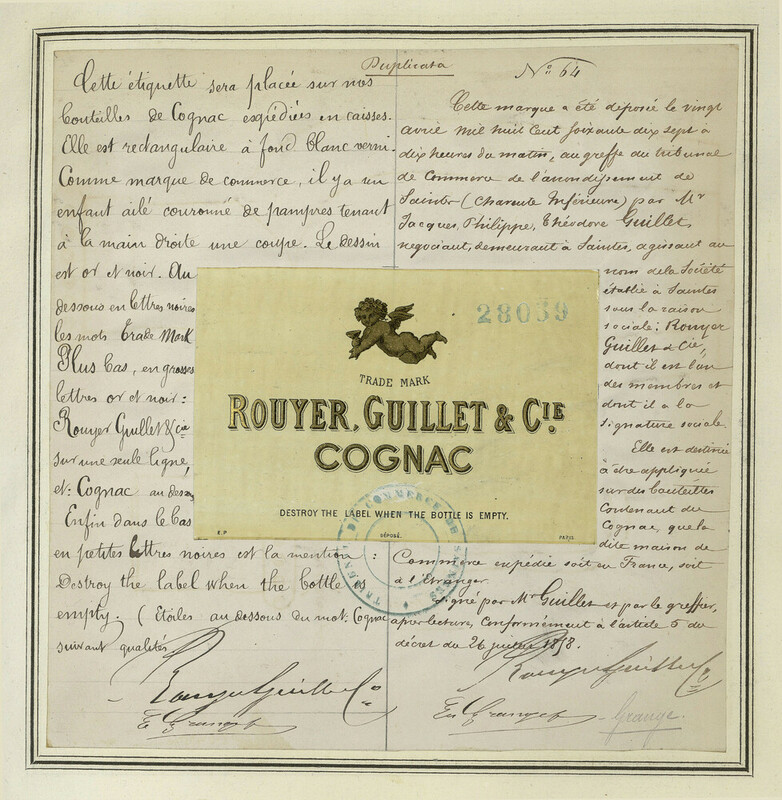 Duplicata
Cette étiquette sera placée sur nos
bouteilles de Cognac expédiées en caisses.
Elle est rectangulaire à fond blanc verni.
Comme marque de commerce, il y a un
enfant ailé couronné de pampres tenant
à la main droite une coupe. Le dessin
est or et noir. Au
dessous en lettres noires
les mots Trade Mark
Plus bas, en grosses
lettres or et noir:
Rouyer Guillet & Cie
sur une seule ligne,
et: Cognac au dessous
Enfin dans le bas
en petites lettres noires est la mention:
Destroy the label when the bottle is
empty. (Etoiles au dessous du mot: Cognac
suivant qualités
Rouyer Guillet & Co
No 64
Cette marque a été déposée le vingt
avril mil huit cent soixante dix sept à
dix heures du matin, au greffe du tribunal
de Commerce de l'arrondissement de
Saintes (Charente Inférieure) par Mr
Jacques, Philippe, Théodore Guillet,
négociant, demeurant à Saintes, agissant au
nom de la Société
établie à Saintes
sous la raison
sociale: Rouyer
Guillet & Cie,
dont il est l'un
des membres et
dont il a la
signature sociale
Elle est destinée
à être appliquée
sur des bouteilles
contenant du
Cognac, que la
dite maison de
Commerce expédie soit en France, soit
à l'Etranger.
Signé par Mr Guillet et par le greffier,
après lecture, Conformément à l'article 5 du
décret du 26 juillet 1858.
Rouyer Guillet & Co
Grange.
28059
TRADE MARK
ROUYER, GUILLET & CIE.
COGNAC
DESTROY THE LABEL WHEN THE BOTTLE IS EMPTY.
DÉPOSÉ.
PARIS
TRIBUNAL DE COMMERCE DE SAINTES